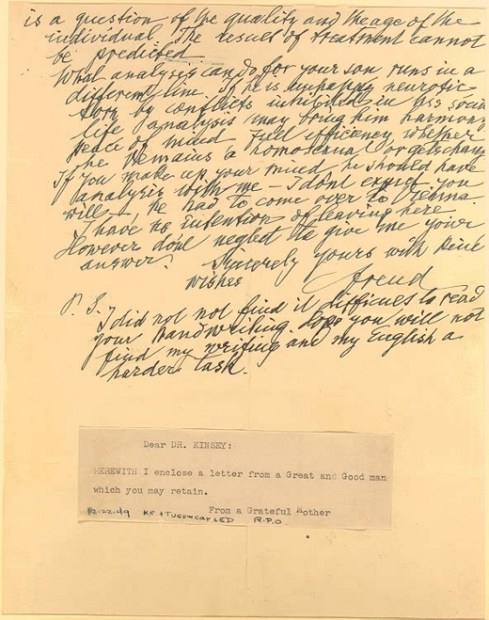 is a question of the quality and the age of the
individual. The result of treatment cannot
be predicted.
What analysis can do for your son runs in a
different line. If he is unhappy, neurotic,
torn by conflicts, inhibited in his social
life, analysis may bring him harmony,
peace of mind, full efficiency whether
he remains a homosexual or gets changed
If you make up your mind he should have
analysis with me — I dont expect you
will — he had to come over to Vienna.
I have no intention of leaving here.
However dont neglect to give me your
answer.
Sincerely yours with kind
wishes
Freud
P. S.
I did not not find it difficult to read
your handwriting. Hope you will not
find my writing and my English a
harder task.
Dear DR. KINSEY:
HEREWITH I enclose a letter from a Great and Good man
which you may retain.
From a Grateful Mother
R.P.O